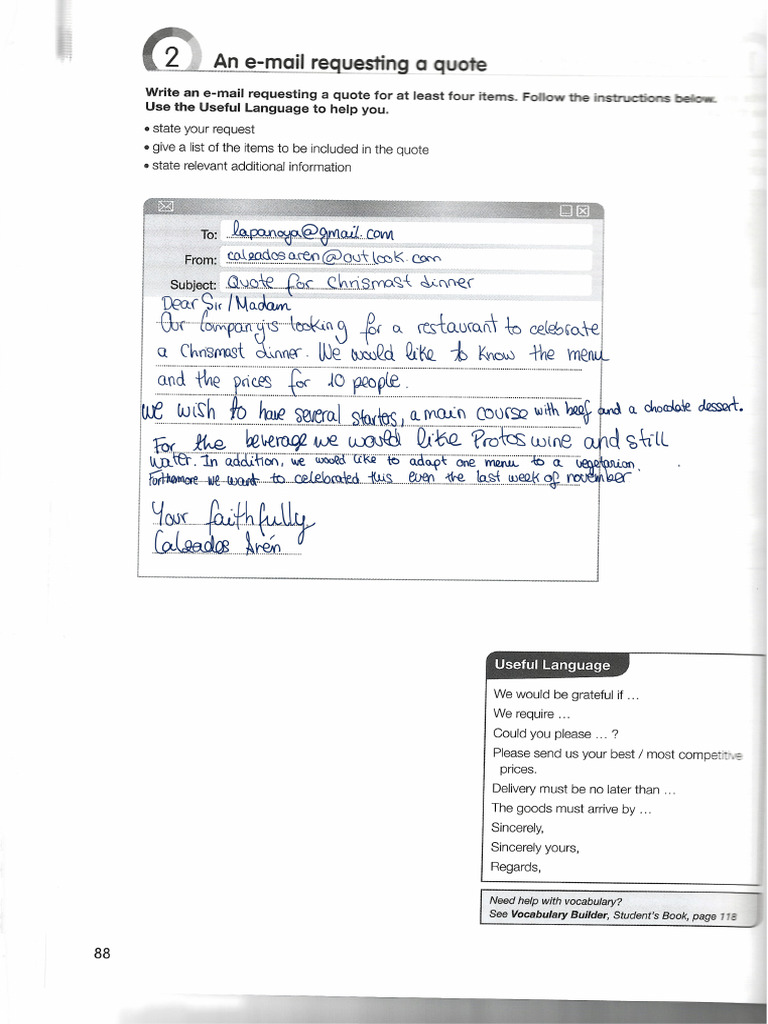 2 An e-mail requesting a quote
Write an e-mail requesting a quote for at least four items. Follow the instructions below.
Use the Useful Language to help you.
• state your request
• give a list of the items to be included in the quote
• state relevant additional information
To: lapanoya@gmail.com
From: calzadosaren@outlook.com
Subject: Quote for Chrismast dinner
Dear Sir/Madam
Our Company is looking for a restaurant to celebrate
a Chrismast dinner. We would like to know the menu
and the prices for 10 people.
We wish to have several startes, a main course with beef and a chocolate dessert.
For the beverage we would like Protos wine and still
water. In addition, we would like to adapt one menu to a vegetarian.
Forthermore we want to celebrated this even the last week of november
Your faithfully
Calzados Arén
Useful Language
We would be grateful if ...
We require ...
Could you please ... ?
Please send us your best / most competitive
prices.
Delivery must be no later than ...
The goods must arrive by ...
Sincerely,
Sincerely yours,
Regards,
Need help with vocabulary?
See Vocabulary Builder, Student's Book, page 118
88